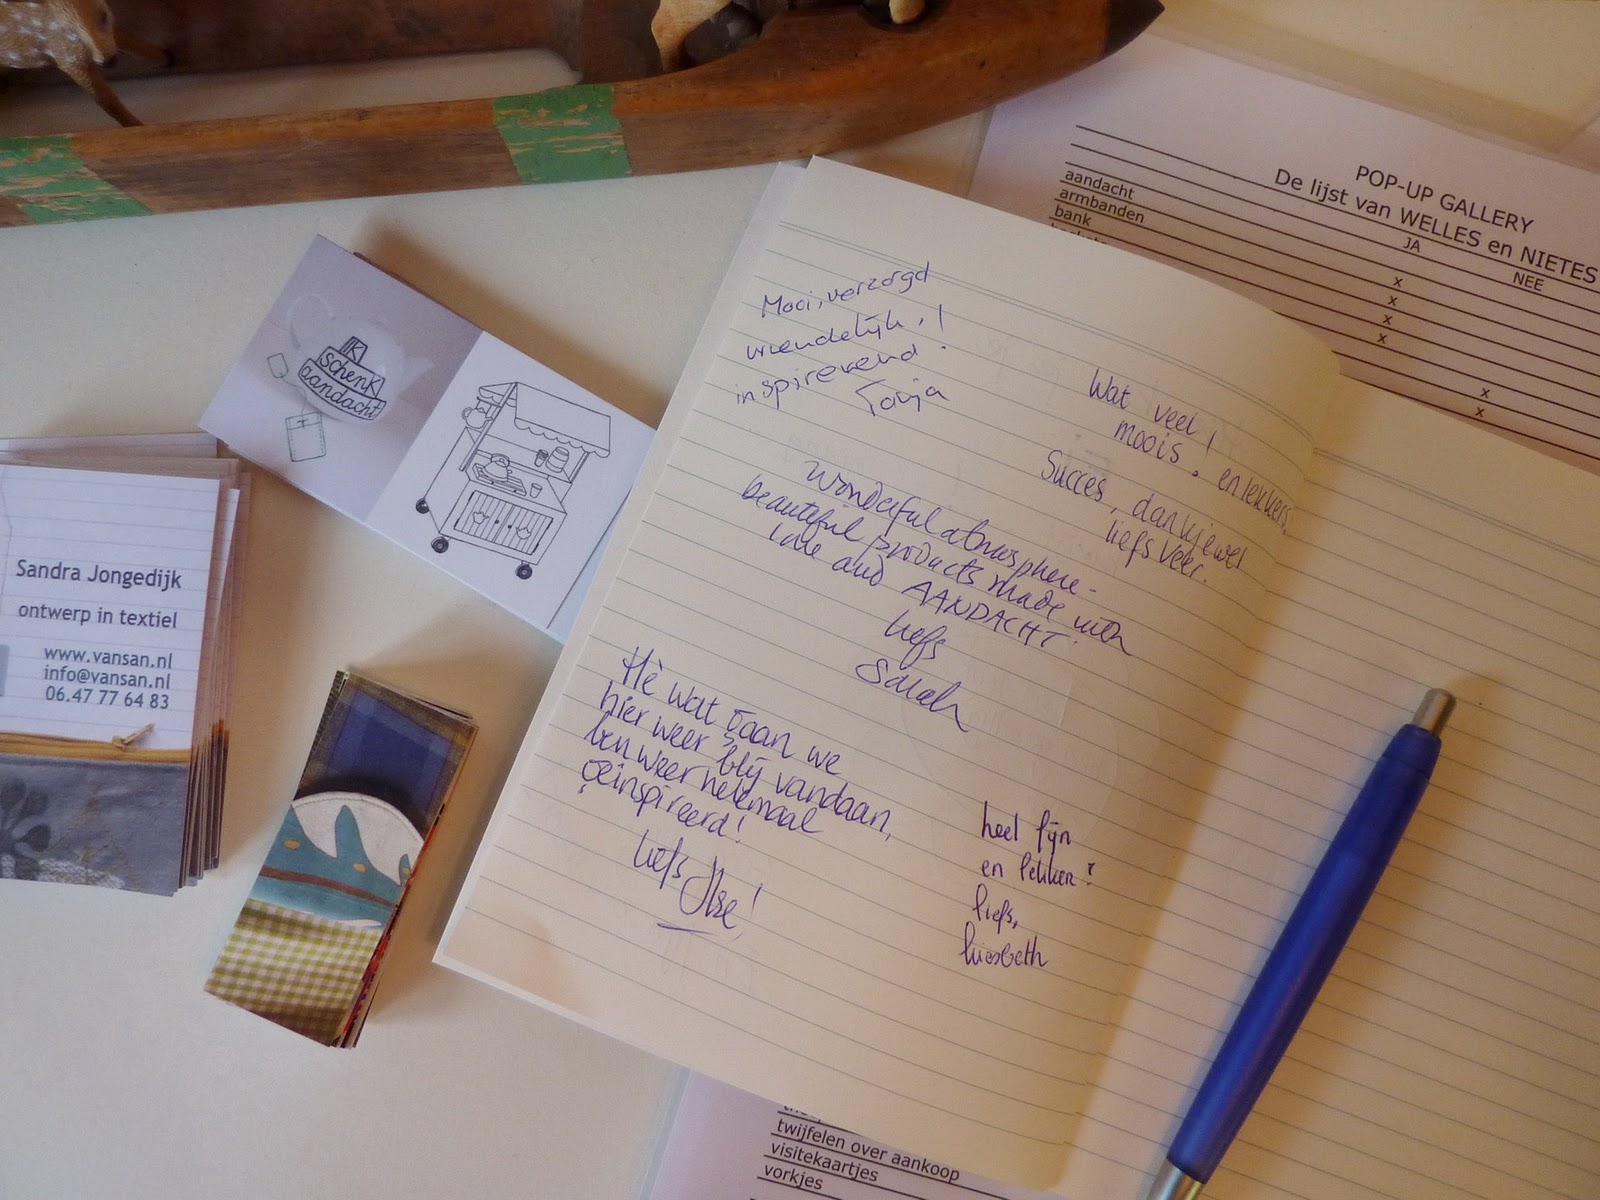 POP-UP GALLERY
De lijst van WELLES en NIETES
JA NEE
aandacht
armbanden
bank
x
x
x
x
x
x
IK
schenk
aandacht
T
Sandra Jongedijk
ontwerp in textiel
www.vansan.nl
info@vansan.nl
06.47 77 64 83
Mooi, verzorgd
vriendelijk, !
inspirerend.
Tonja
Wat veel !
moois. en lekkers.
Succes, dankjewel
liefs Veer.
Wonderful atmosphere -
beautiful products made with
love and AANDACHT!
liefs
Sarah
Hè wat gaan we
hier weer blij vandaan,
ben weer helemaal
geïnspireerd!
liefs Ilse!
heel fijn
en lekker!
liefs,
liesbeth
twijfelen over aankoop
visitekaartjes
vorkjes